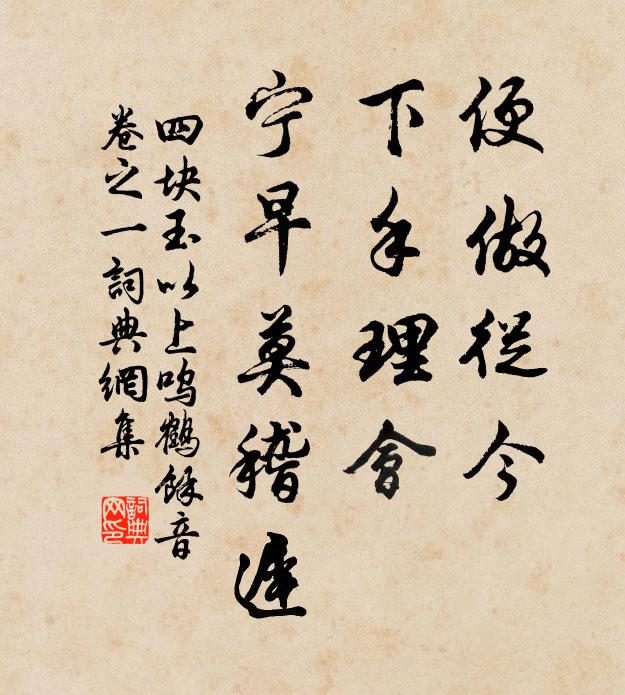 便做從今
下手理會
宁早莫稽遲
四块玉以上鸣鹤餘音
卷之一詞典網集
詞典
网印